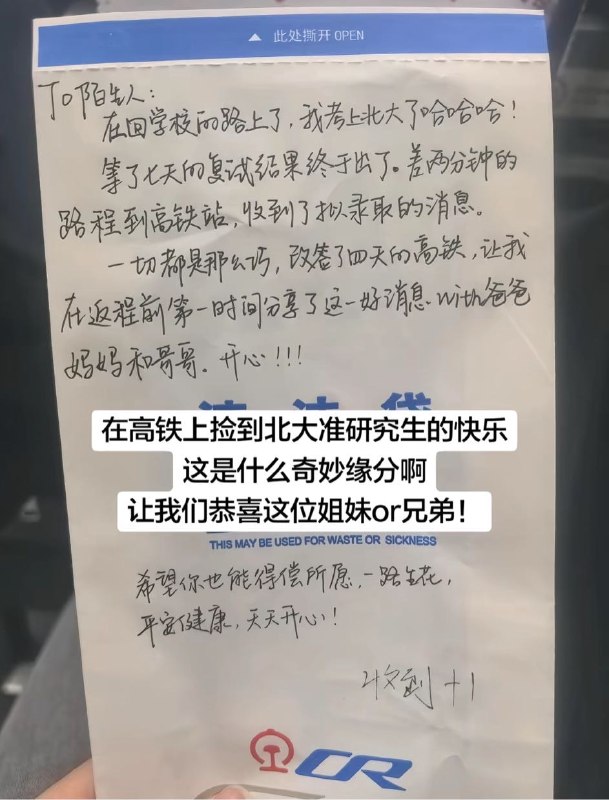 ▲ 此处撕开 OPEN
To陌生人：
在回学校的路上了，我考上北大了哈哈哈！
等了七天的复试结果终于出了。差两分钟的
路程到高铁站，收到了拟录取的消息。
一切都是那么巧，改签了四天的高铁，让我
在返程前第一时间分享了这一好消息with爸爸
妈妈和哥哥。开心！！！
清洁袋
在高铁上捡到北大准研究生的快乐
这是什么奇妙缘分啊
让我们恭喜这位姐妹or兄弟！
THIS MAY BE USED FOR WASTE OR SICKNESS
希望你也能得偿所愿，一路生花，
平安健康，天天开心！
收到+1
CR